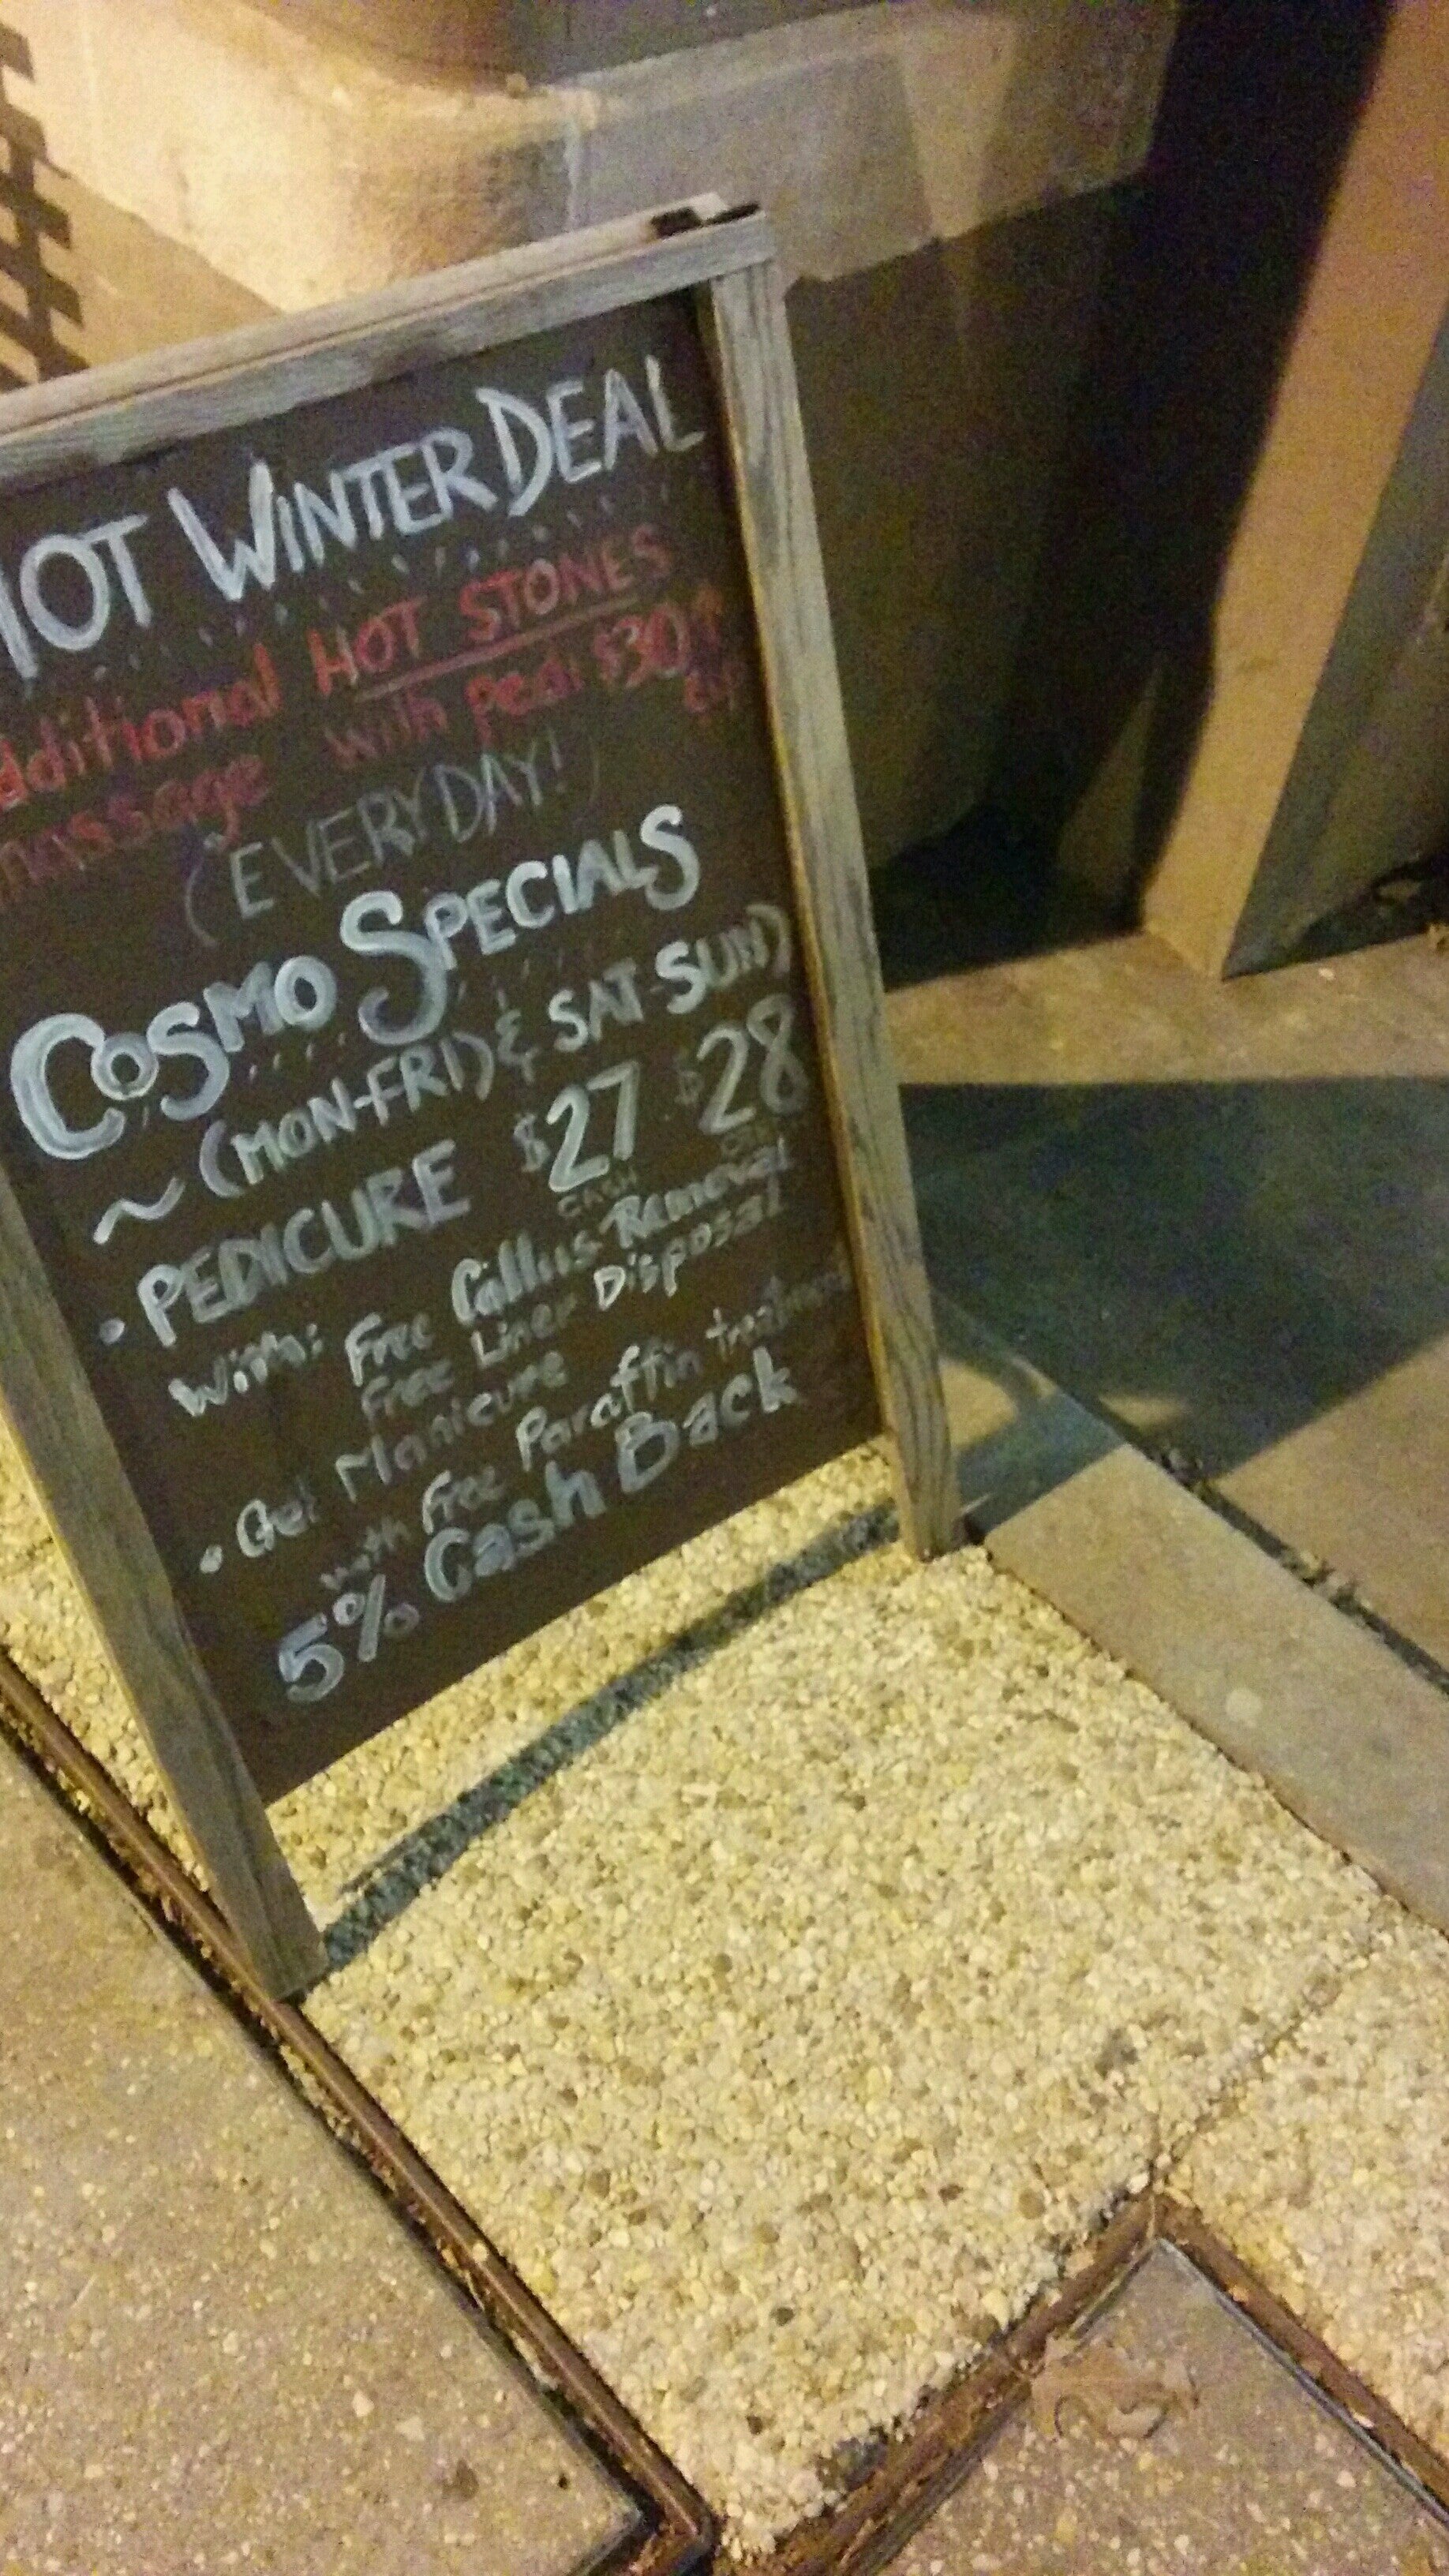 HOT WINTER DEAL
Additional HOT STONES
massage with pedi $30↑
(EVERYDAY!)
COSMO SPECIALS
~(MON-FRI) & SAT-SUN)
• PEDICURE $27 $28
CASH
With: Free Callus Removal
Free Liner Disposal
• Gel Manicure
with Free Paraffin treatment
5% Cash Back